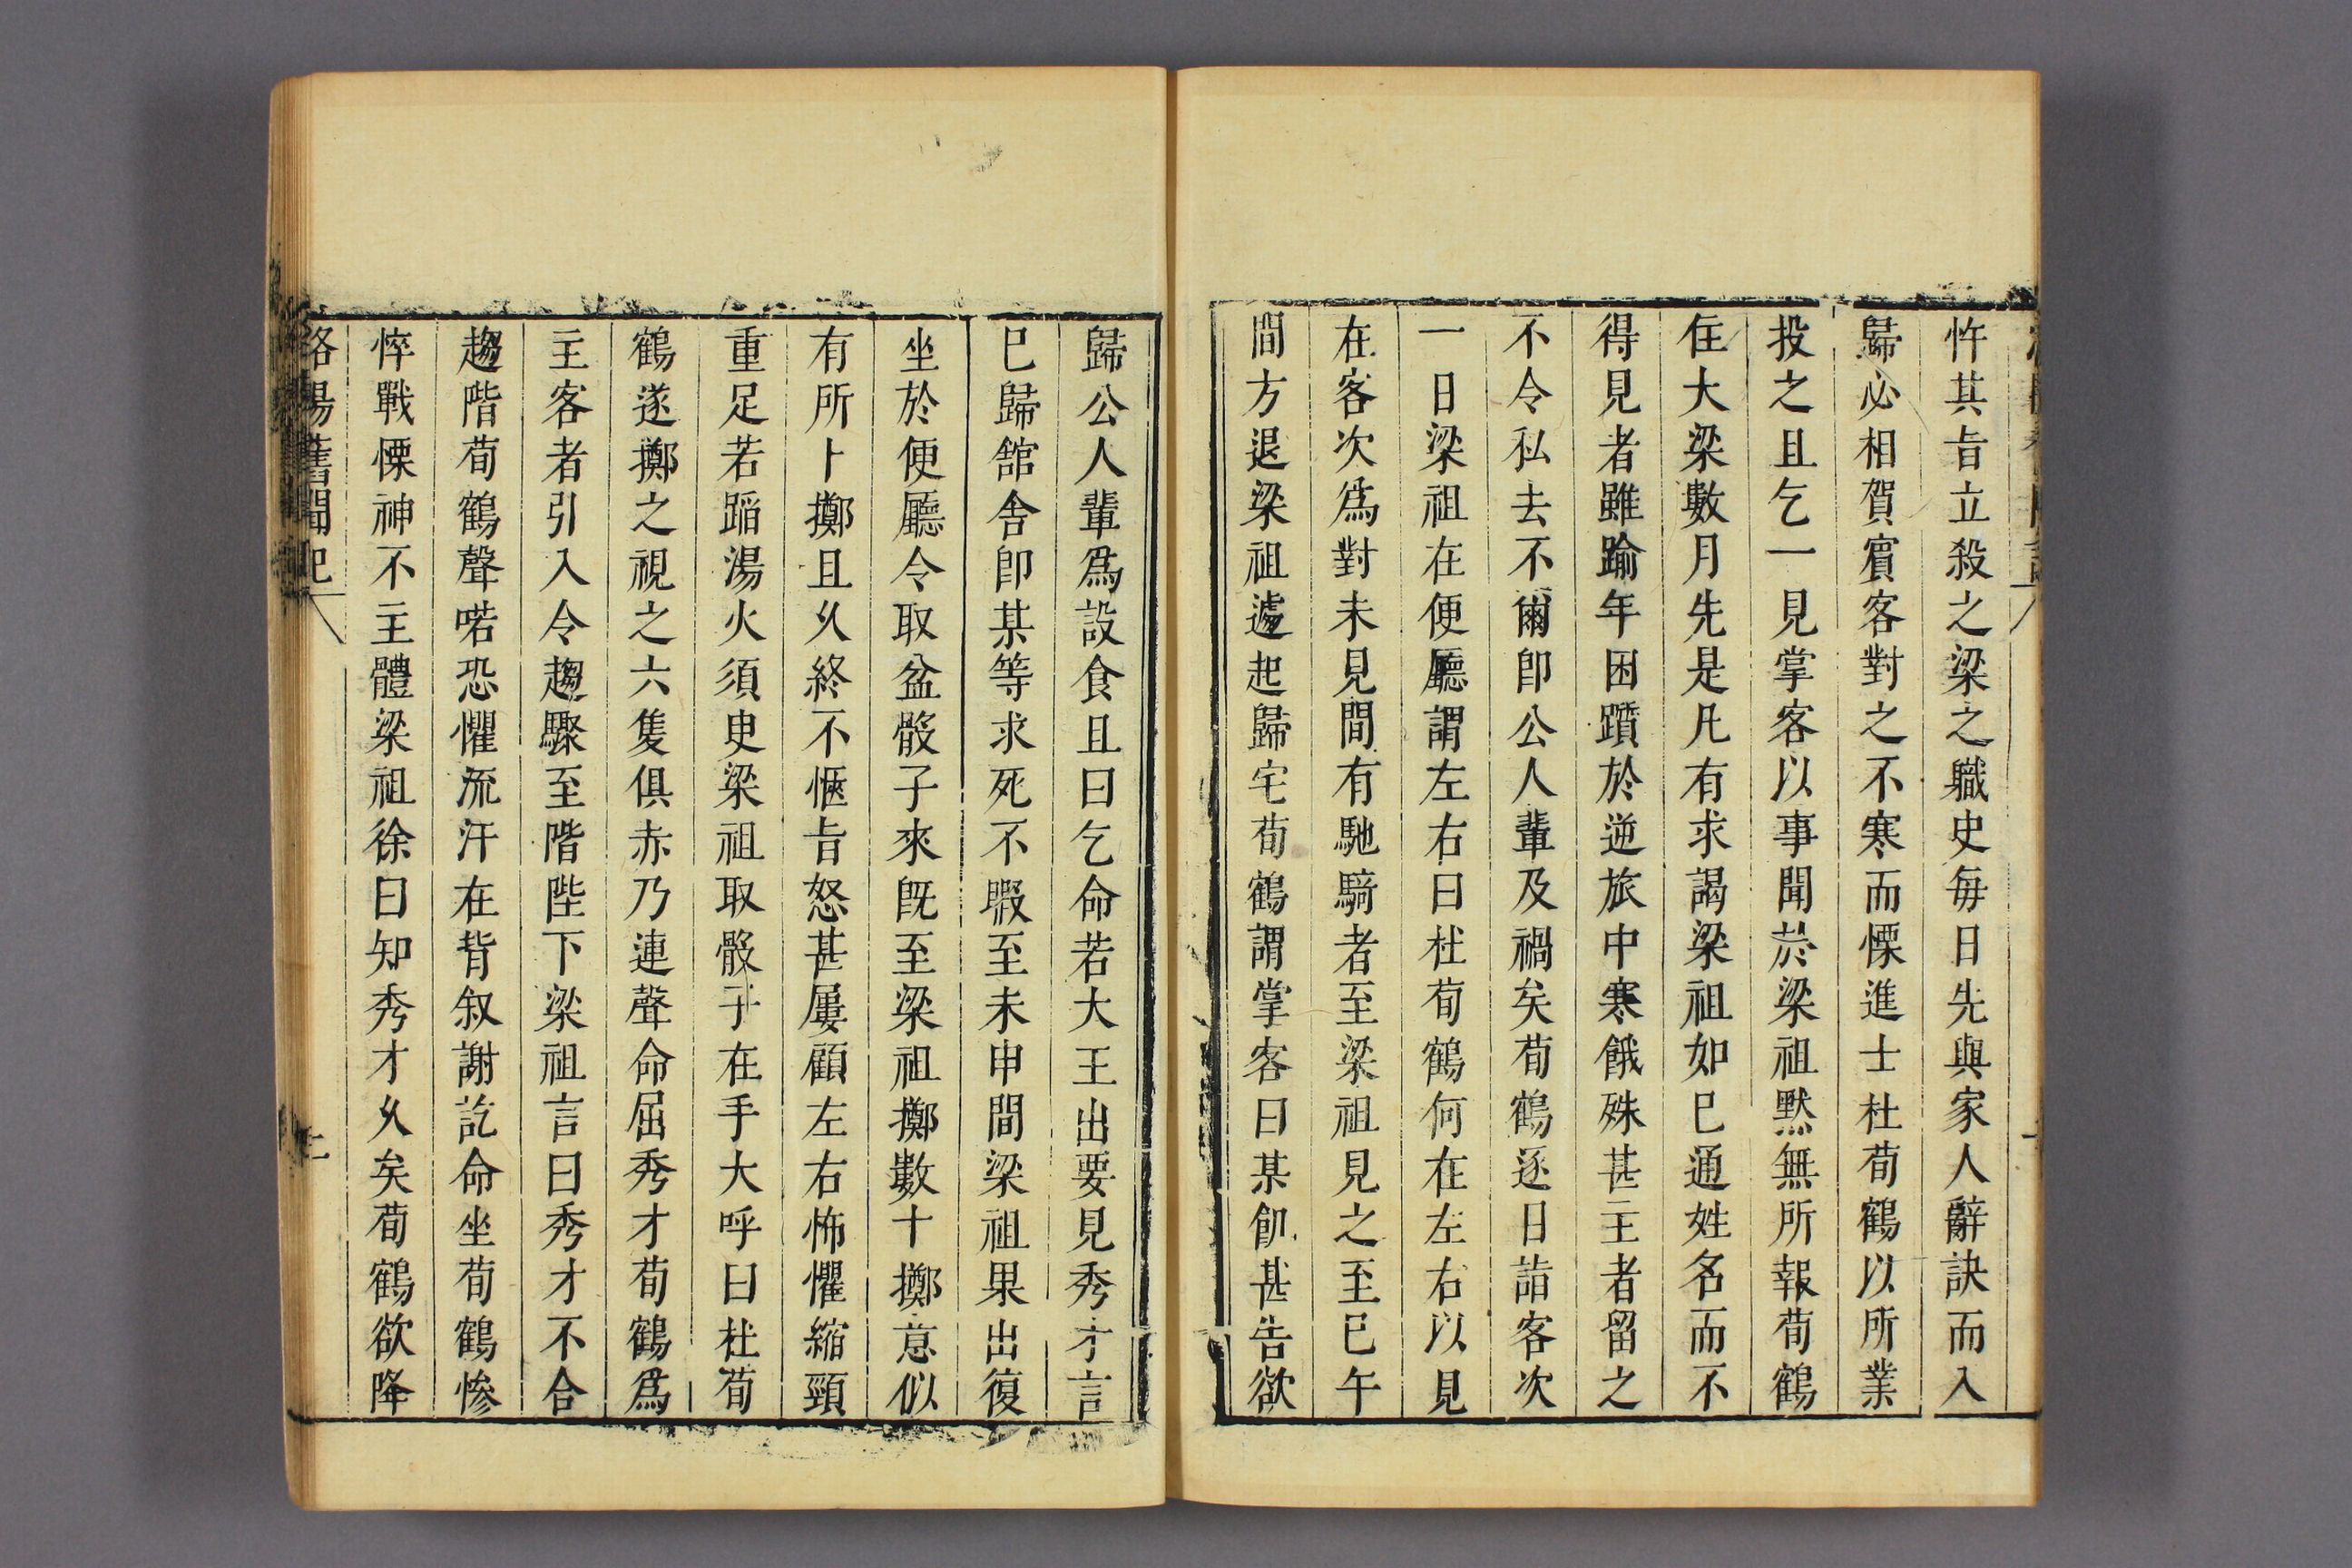 忤其㫖立殺之梁之職史毎日先與家人辭訣而入
歸必相賀賔客對之不寒而慄進士杜荀鶴以所業
投之且乞一見掌客以事聞於梁祖黙無所報荀鶴
住大梁數月先是凡有求謁梁祖如巳通姓名而不
得見者雖踰年困躓於逆旅中寒餓殊甚主者留之
不令私去不爾卽公人輩及禍矣荀鶴逐日詣客次
一日梁祖在便廳謂左右曰杜荀鶴何在左右以見
在客次爲對未見間有馳騎者至梁祖見之至巳午
間方退梁祖遽起歸宅荀鶴謂掌客曰某飢甚告欲
歸公人輩爲設食且曰乞命若大王出要見秀才言
巳歸舘舎卽某等求死不暇至未申間梁祖果出復
坐於便廳令取盆骰子來旣至梁祖擲數十擲意似
有所卜擲且乆終不愜㫖怒甚屢顧左右怖懼縮頸
重足若蹈湯火須臾梁祖取骰子在手大呼曰杜荀
鶴遂擲之視之六隻俱赤乃連聲命屈秀才荀鶴爲
主客者引入令趨驟至階陛下梁祖言曰秀才不合
趨階荀鶴聲喏恐懼流汗在背叙謝訖命坐荀鶴慘
悴戰慄神不主體梁祖徐曰知秀才乆矣荀鶴欲降
洛陽舊聞記 一